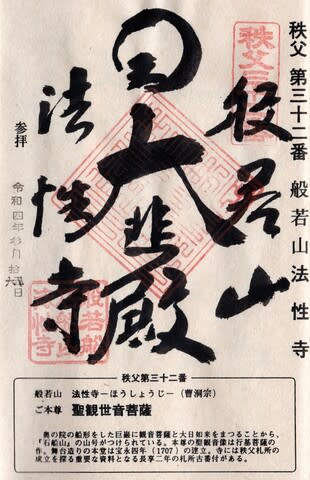 秩父 第三十二番 般若山 法性寺
般若山
大悲殿
法性寺
参拝
令和四年
日
秩父第三十二番
般若山 法性寺−ほうしょうじ−(曹洞宗)
ご本尊 聖観世音菩薩
奥の院の船形をした巨巌に観音菩薩と大日如来をまつることから、
『石船山』の山号がつけられている。本尊の聖観世音像は行基菩薩の
作。舞台造りの本堂は宝永四年(1707)の建立。寺には秩父札所の
成立を探る重要な資料となる長享二年の札所古番付がある。